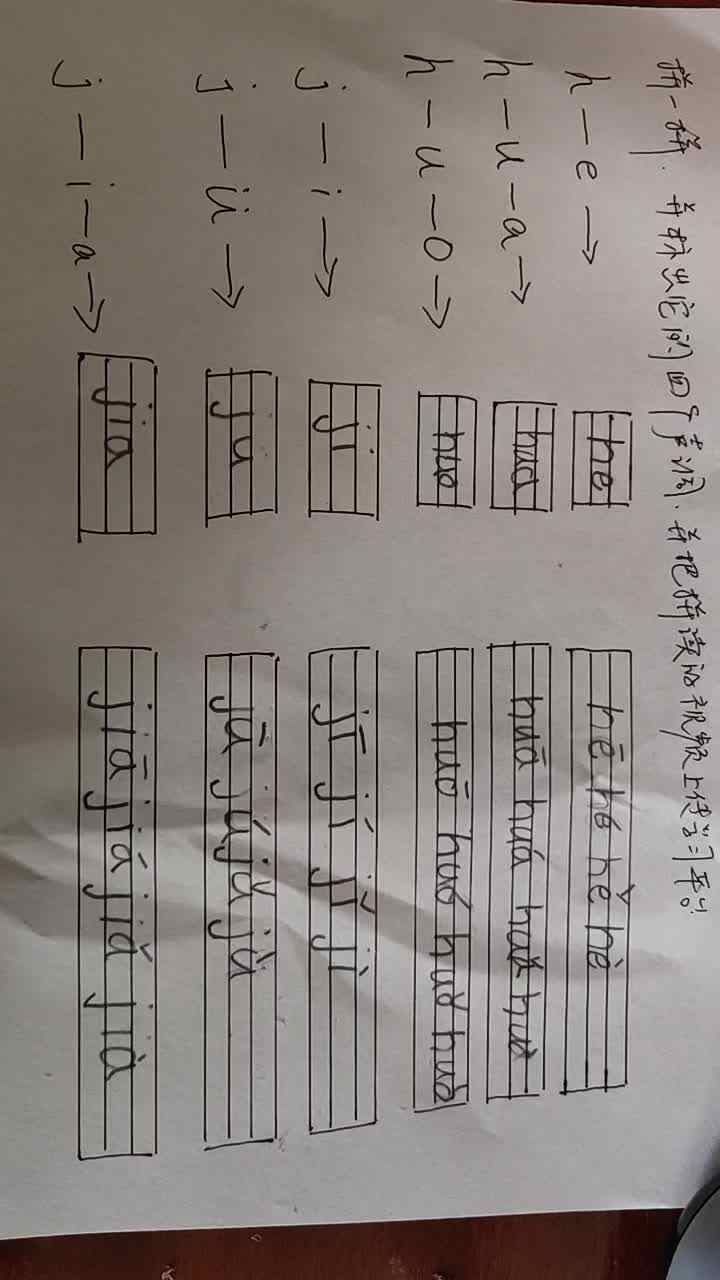 拼一拼.并标出它的四个声调.并把拼读的视频上传学习平台
h — e → he hē hé hě hè
h — u — a → hua huā huá huǎ huà
h — u — o → huo huō huó huǒ huò
j — i → ji jī jí jǐ jì
j — ü → ju jū jú jǔ jù
j — i — a → jia jiā jiá jiǎ jià